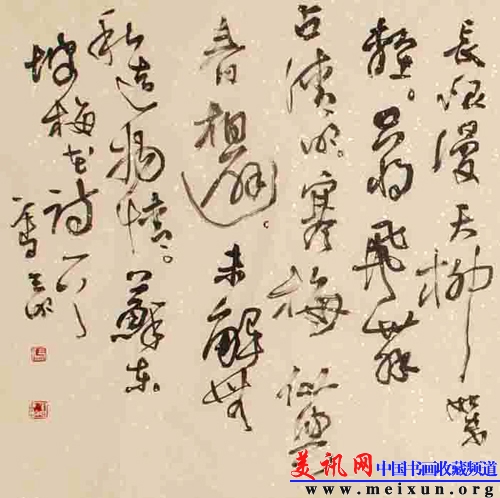 長恨漫天柳絮
輕。只将飛舞
占清明。寒梅似與
春相避。未解無
私造物情。蘇東
坡梅花詩一首
美讯网 中国书画收藏频道
www.meixun.org